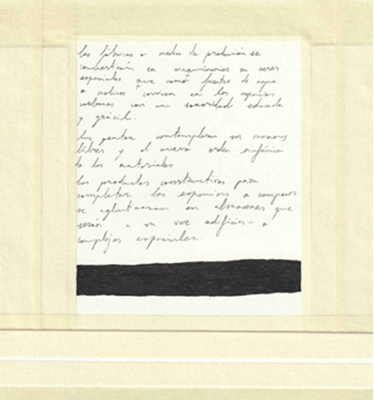 las fábricas o medios de producción se
convertirán en maquinarias en seres
espaciales que como fuentes de agua
o molinos conviven en los espacios
urbanos con una sonoridad educada
y grácil.
las gentes contemplarán sus manos
libres y el nuevo orden sinfónico
de los materiales
los productos constructivos para
completar los espacios a componer
se aglutinarán en almacenes que
serán a su vez edificios o
complejos espaciales.